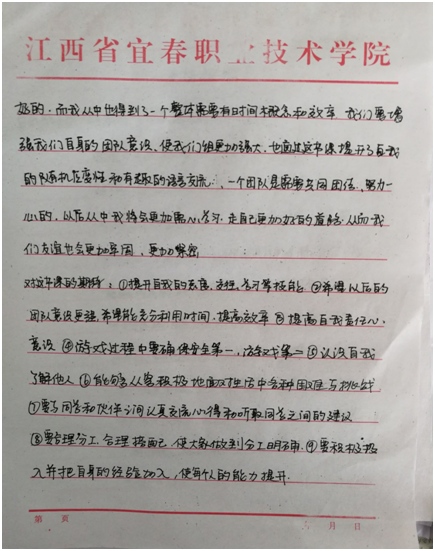 江西省宜春职业技术学院
好的.而我从中也得到了一个整体需要有时间概念和效率.我们要增
强我们自身的团队意识、使我们组更加强大,也通过这节课提升了自我
的随机应变性和有趣的语言交流.一个团队是需要共同团结、努力一
心的,以后从中我将会更加需心学习.走自己更加好的道路.从而我
们友谊也会更加牢固,更加紧密
对这节课的期待:①提升自我的态度,选择,学习等技能 ②希望以后的
团队意识更强,希望能充分利用时间.提高效率 ③提高自我责任心,
意识 ④游戏过程中要确保安全第一,游戏第二 ⑤认识自我
了解他人 ⑥能够从容积极地面对生活中各种困难与挑战
⑦要与同学和伙伴之间认真交流心得和听取同学之间的建议
⑧要合理分工.合理搭配,使大家做到分工明确.⑨要积极投
入并把自身的经验加入,使每个人的能力提升.
第 页 月 日